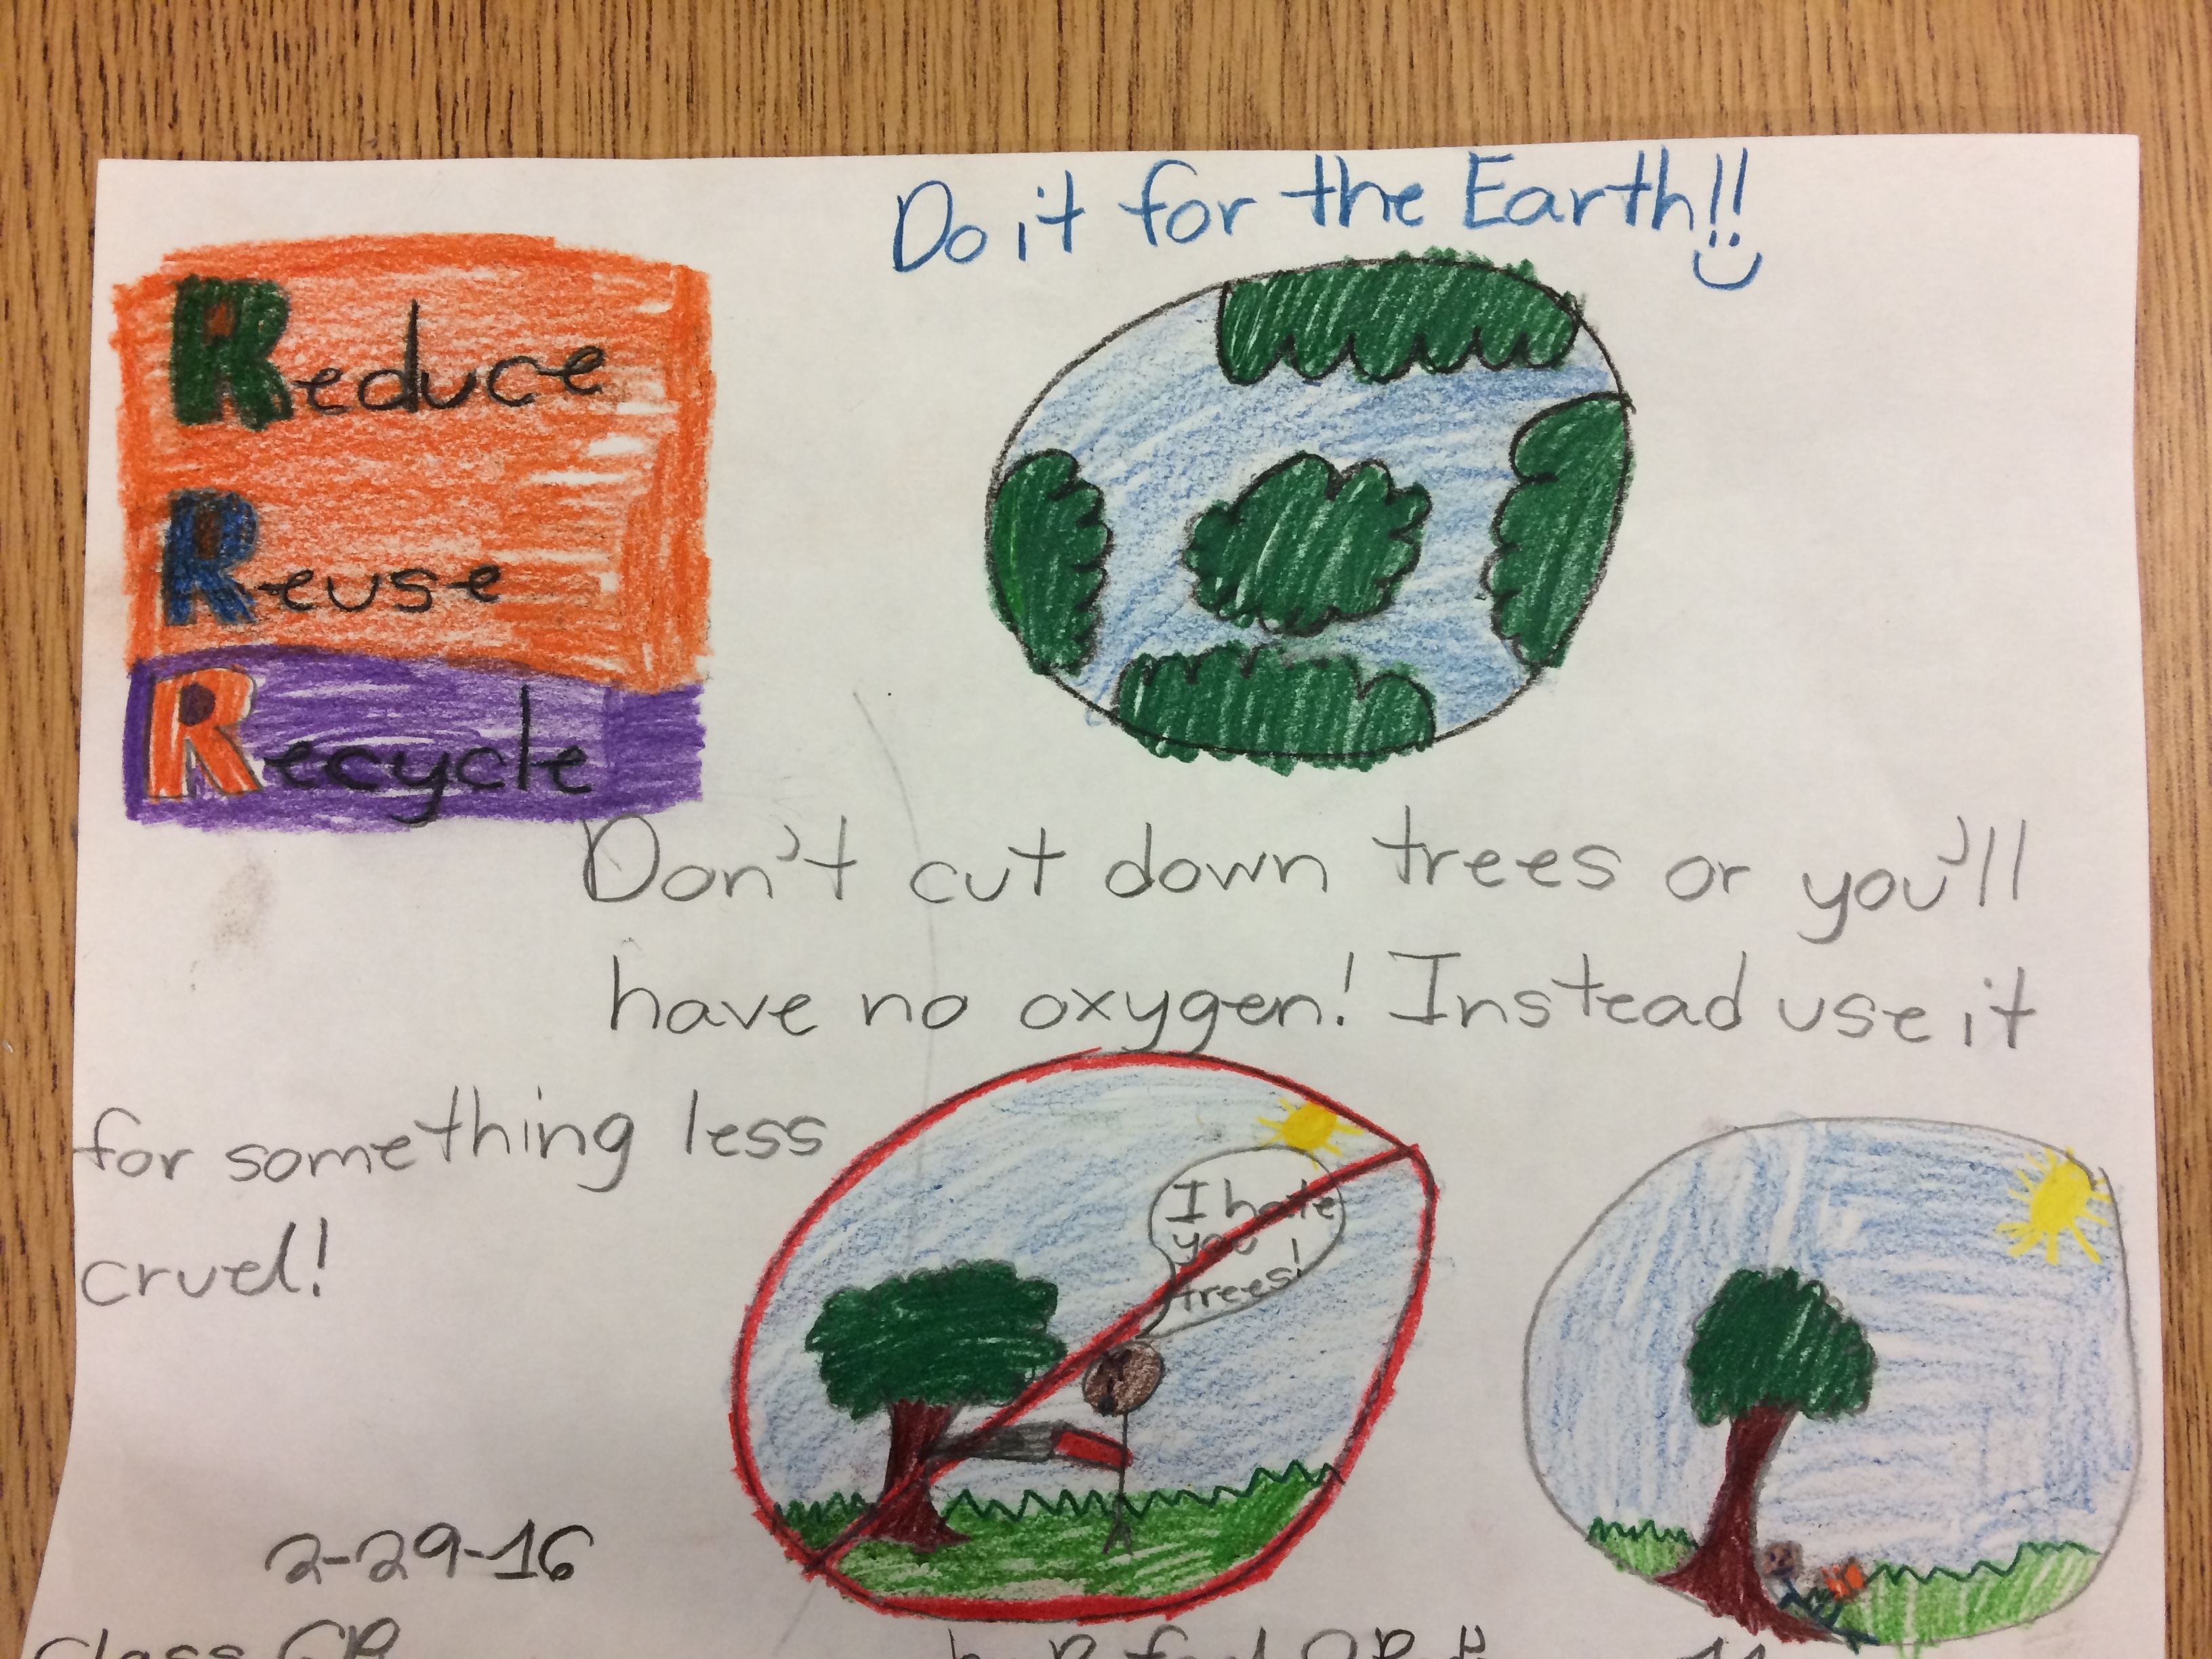 Do it for the Earth!!
Reduce
Reuse
Recycle
Don't cut down trees or you'll
have no oxygen! Instead use it
for something less
cruel!
I hate
you
trees!
2-29-16
Class